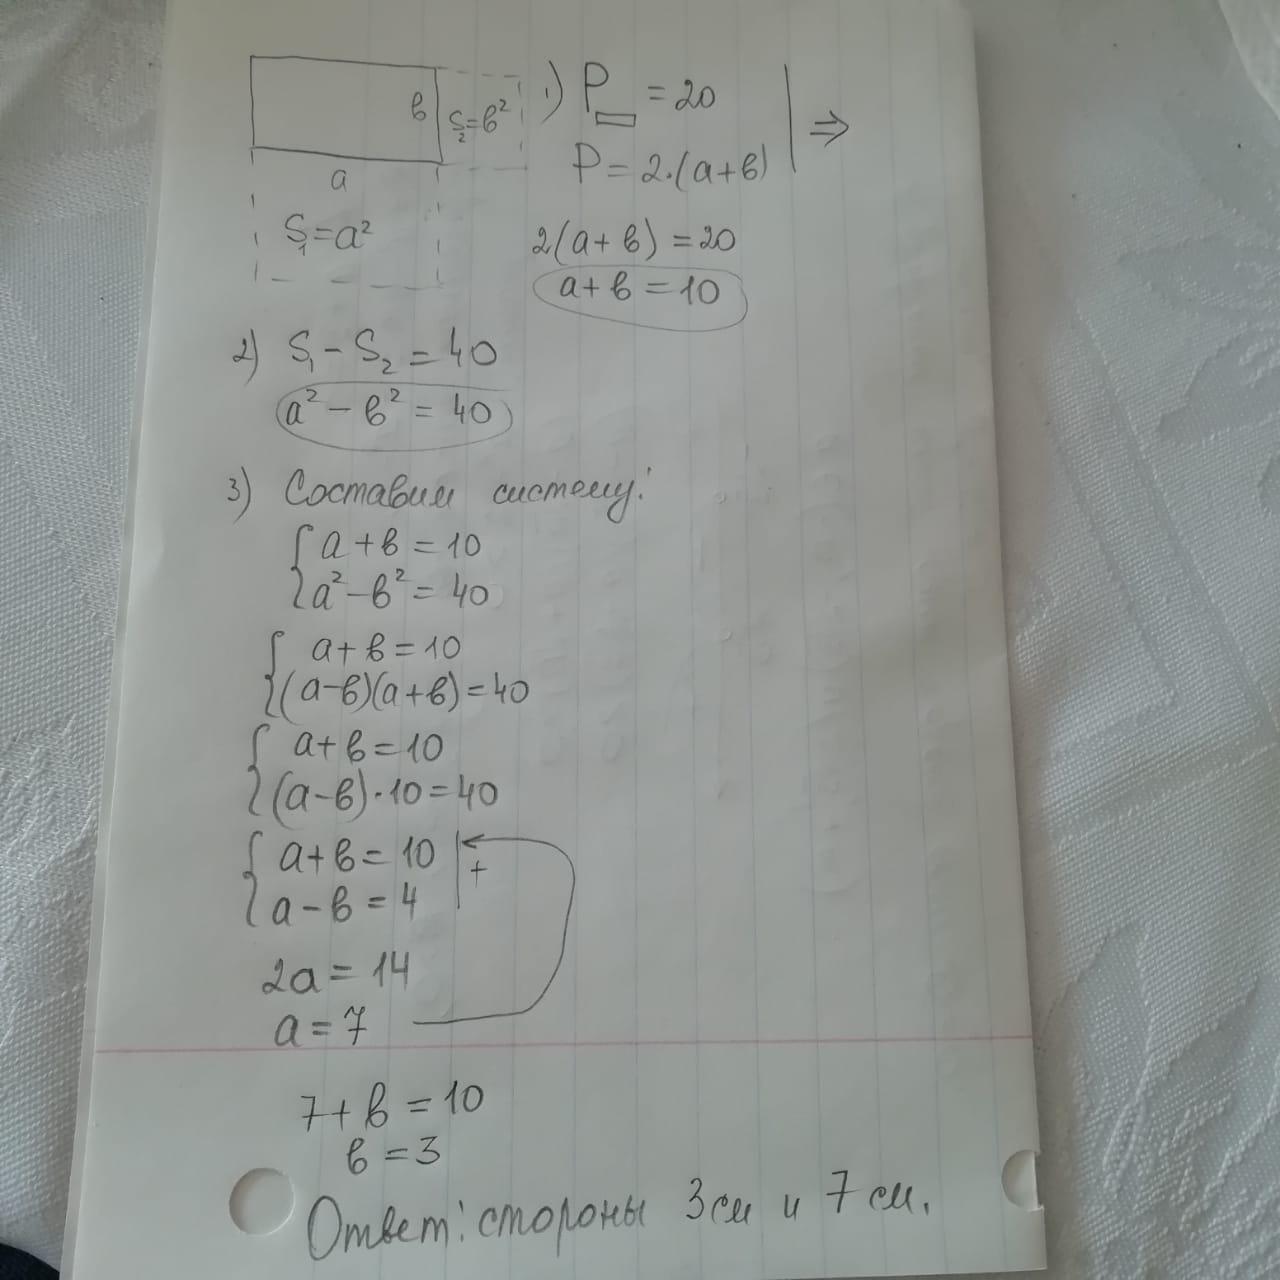 в
S₂=в²
a
S₁=a²
1) P▭ = 20
P=2·(a+в)
⇒
2(a+в)=20
a+в=10
2) S₁-S₂=40
a²-в²=40
3) Составим систему:
{a+в=10
a²-в²=40
{a+в=10
(a-в)(a+в)=40
{a+в=10
(a-в)·10=40
{a+в=10
a-в=4
+
2a=14
a=7
7+в=10
в=3
Ответ: стороны 3см и 7см.